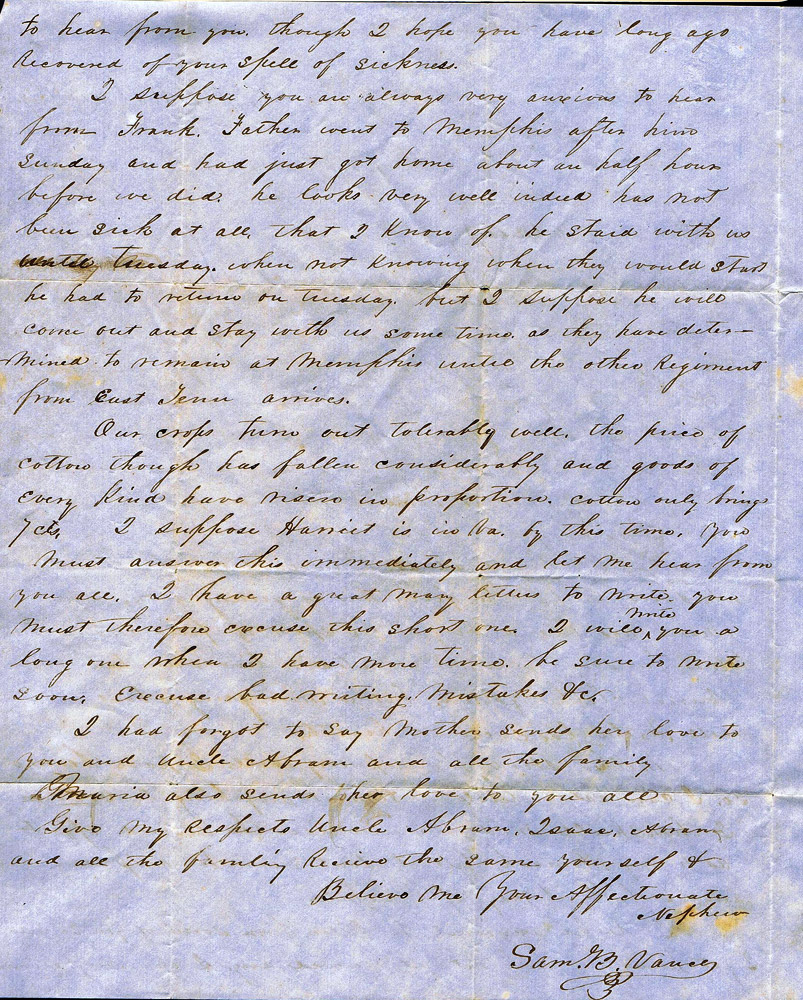 to hear from you. though I hope you have long ago
Recovered of your spell of sickness.
I suppose you are always very anxious to hear
from Frank. Father went to Memphis after him
Sunday and had just got home about an half hour
before we did. he looks very well indeed has not
been sick at all, that I know of. he staid with us
until Tuesday. when not knowing when they would start
he had to return on Tuesday. but I suppose he will
come out and stay with us some time. as they have deter-
-mined to remain at Memphis untie the other Regiment
from East Tenn arrives.
Our crops turn out tolerably well. the price of
cotton though has fallen considerably and goods of
every kind have risen in proportion. cotton only brings
7 cts. I suppose Harriet is in Va. by this time. You
must answer this immediately and let me hear from
you all. I have a great many letters to write you
must therefore excuse this short one. I will write you a
long one when I have more time. be sure to write
soon. Excuse bad writing. Mistakes &c.
I had forgot to say Mother sends her love to
you and Uncle Abram and all the family
Maria also sends her love to you all
Give my Respects Uncle Abram, Isaac, Abram
and all the family Recieve the same yourself &
Believe me Your Affectionate
Nephew
Sam. B. Vance